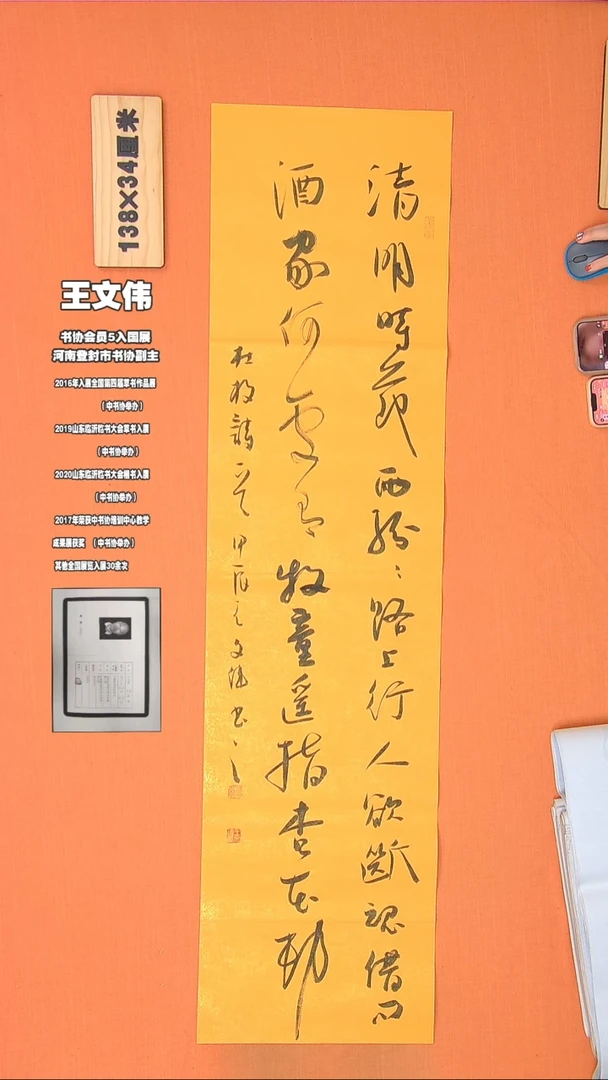 清明時節雨紛〻路上行人欲斷魂借问
酒家何處有牧童遥指杏花邨
杜牧詩一首甲辰之文伟书之
138X34厘米
王文伟
书协会员5入国展
河南登封市书协副主
2016年入展全国第四届草书作品展
(中书协举办)
2019山东临沂临书大会草书入展
(中书协举办)
2020山东临沂临书大会楷书入展
(中书协举办)
2017年荣获中书协培训中心教学
成果展获奖 (中书协举办)
其他全国展览入展30余次